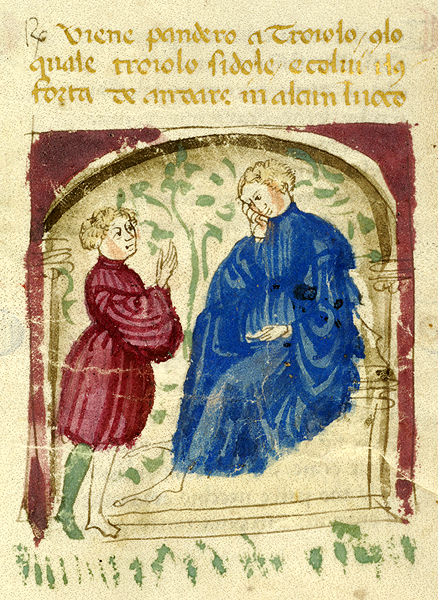 Viene pandero a Troiolo / alo
quale troiolo si dole, e colui ilo
forza de andare in alcun luoco